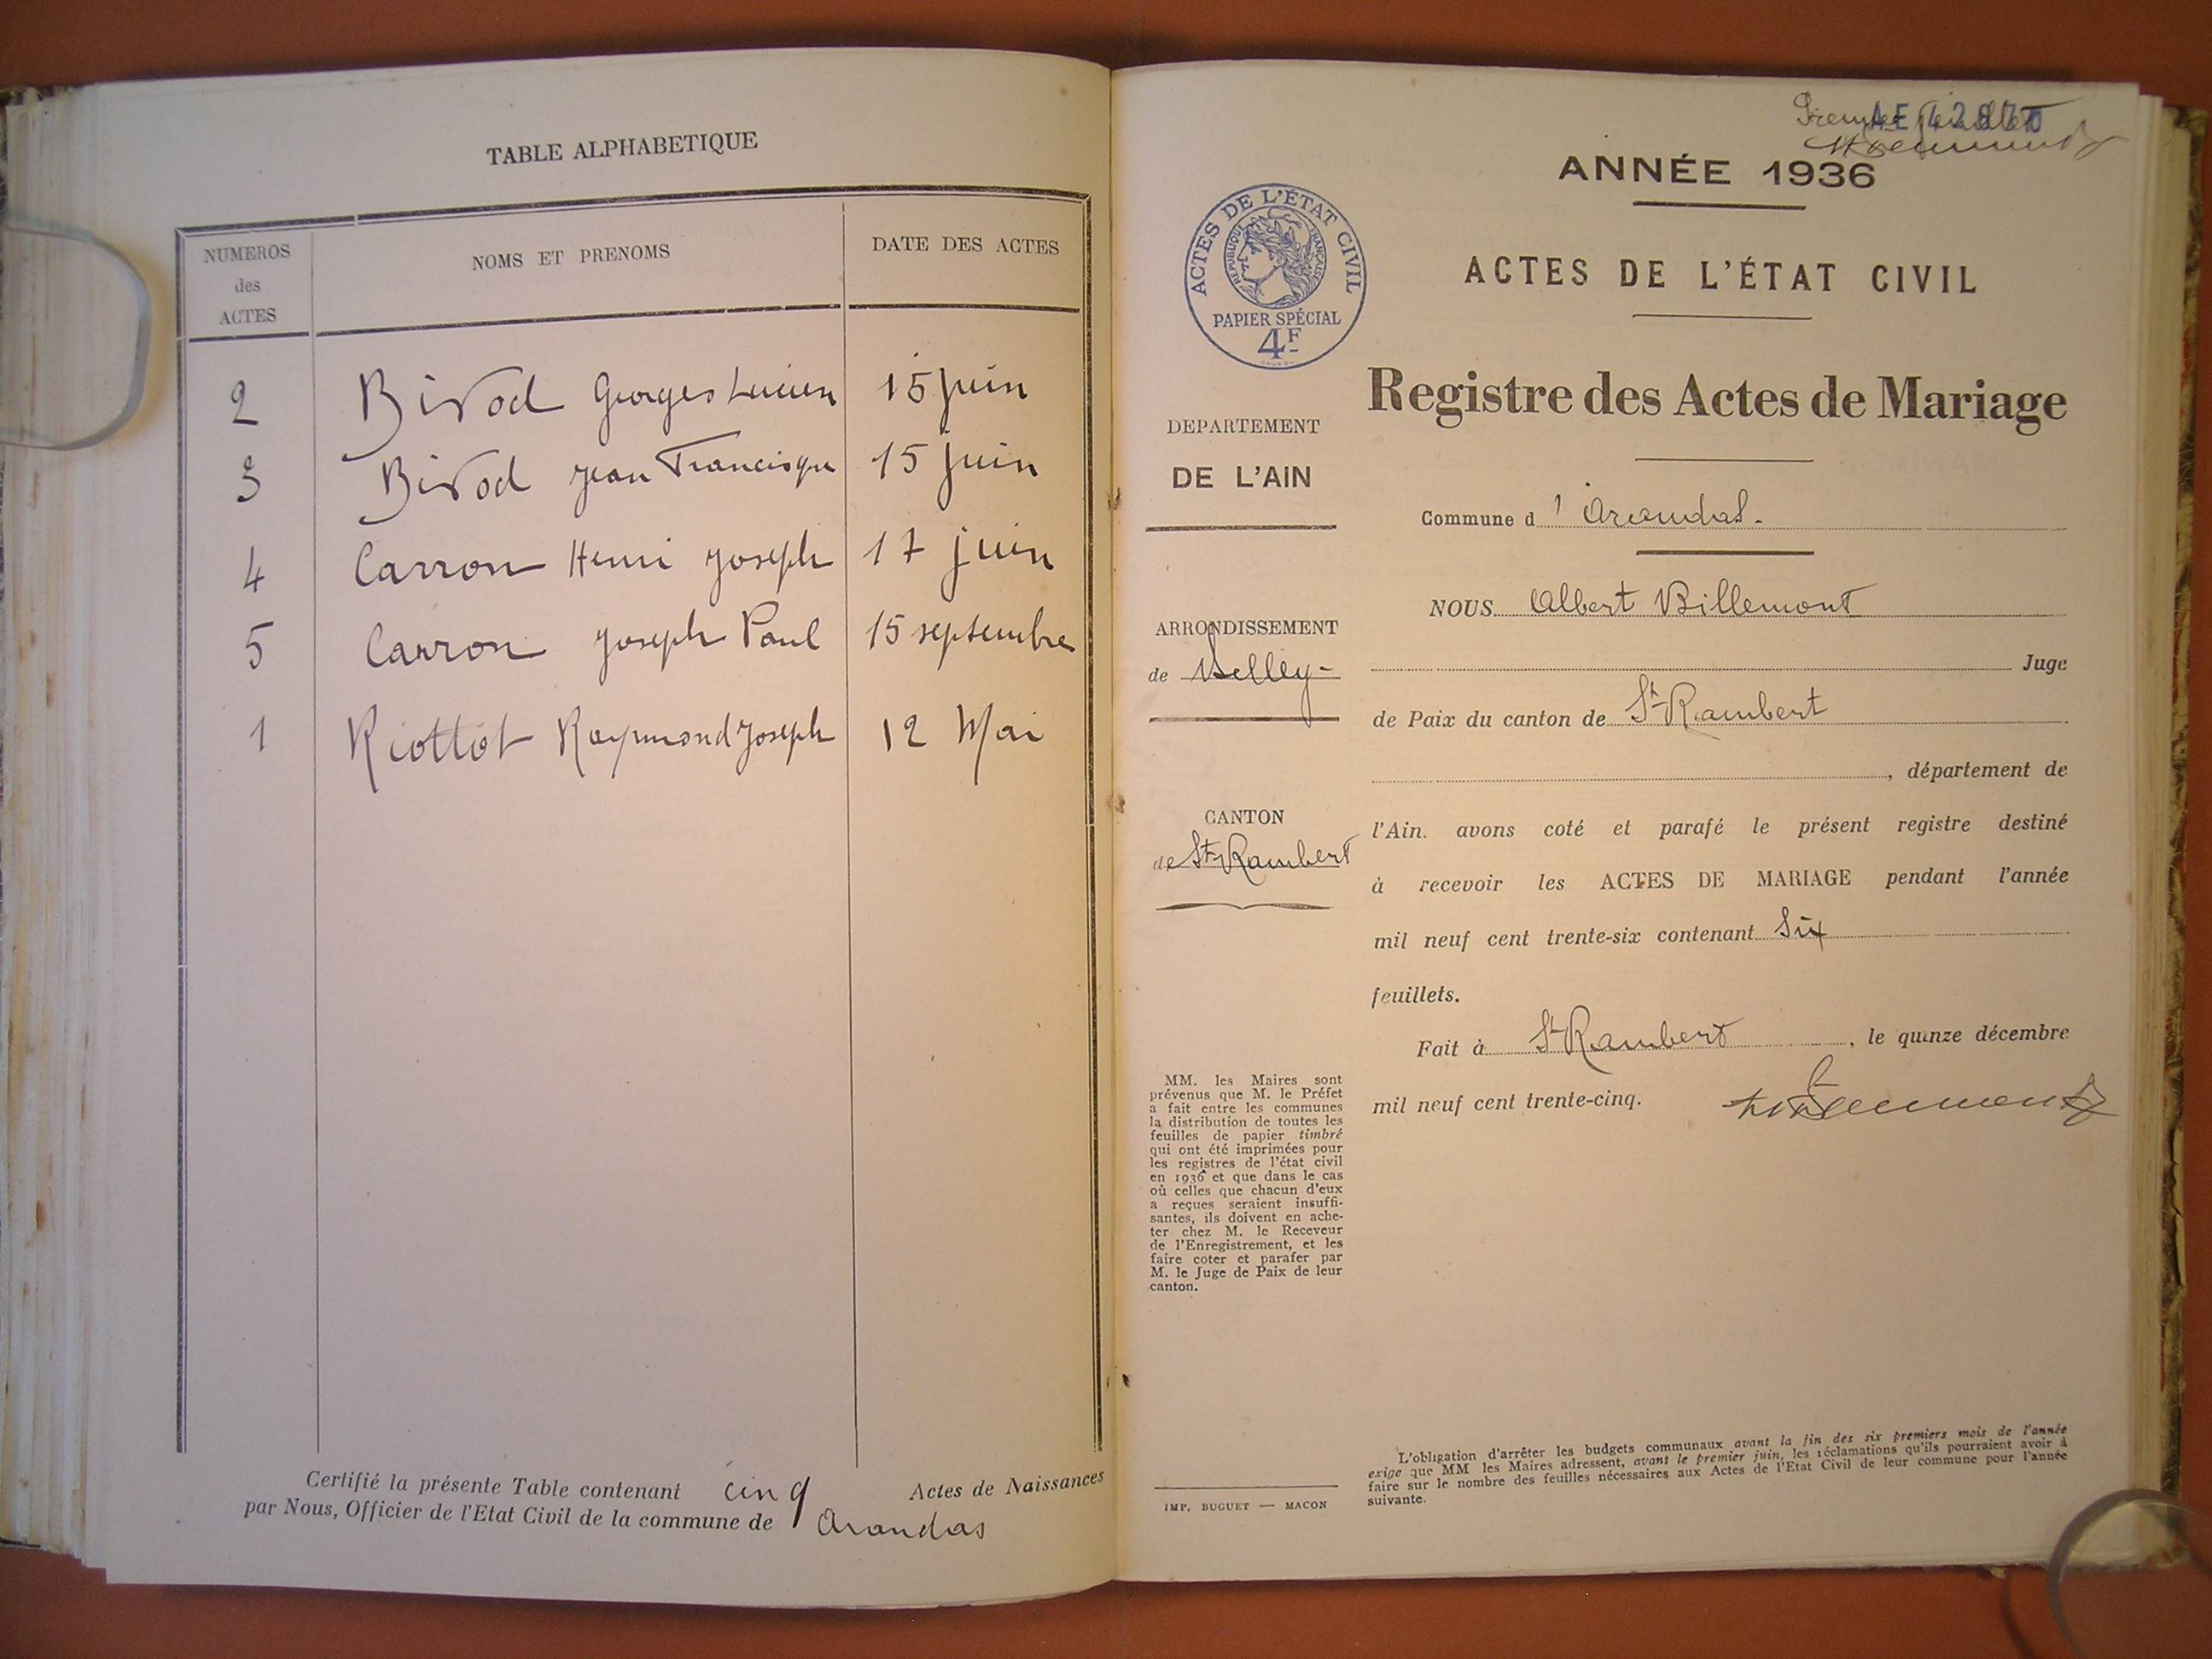 TABLE ALPHABETIQUE
NUMEROS
des
ACTES
NOMS ET PRENOMS
DATE DES ACTES
2 Bivod Georges Lucien 15 juin
3 Bivod Jean Francisque 15 juin
4 Carron Henri Joseph 17 juin
5 Carron Joseph Paul 15 septembre
1 Riottot Raymond Joseph 12 Mai
Certifié la présente Table contenant cinq Actes de Naissances
par Nous, Officier de l'Etat Civil de la commune de Arandas
Premier feuillet
AE 42870
ANNÉE 1936
ACTES DE L'ÉTAT CIVIL
RÉPUBLIQUE FRANÇAISE
PAPIER SPÉCIAL
4F
ACTES DE L'ÉTAT CIVIL
Registre des Actes de Mariage
DEPARTEMENT
DE L'AIN
Commune d'Arandas.
NOUS Albert Billemont
ARRONDISSEMENT
de Belley-
Juge
de Paix du canton de St Rambert
, département de
CANTON
de St-Rambert
l'Ain. avons coté et parafé le présent registre destiné
à recevoir les ACTES DE MARIAGE pendant l'année
mil neuf cent trente-six contenant Six
feuillets.
Fait à St Rambert, le quinze décembre
mil neuf cent trente-cinq.
MM. les Maires sont
prévenus que M. le Préfet
a fait entre les communes
la distribution de toutes les
feuilles de papier timbré
qui ont été imprimées pour
les registres de l'état civil
en 1936 et que dans le cas
où celles que chacun d'eux
a reçues seraient insuffi-
santes, ils doivent en ache-
ter chez M. le Receveur
de l'Enregistrement, et les
faire coter et parafer par
M. le Juge de Paix de leur
canton.
L'obligation d'arrêter les budgets communaux avant la fin des six premiers mois de l'année
exige que MM les Maires adressent, avant le premier juin, les réclamations qu'ils pourraient avoir à
faire sur le nombre des feuilles nécessaires aux Actes de l'Etat Civil de leur commune pour l'année
suivante.
IMP. BUGUET — MACON